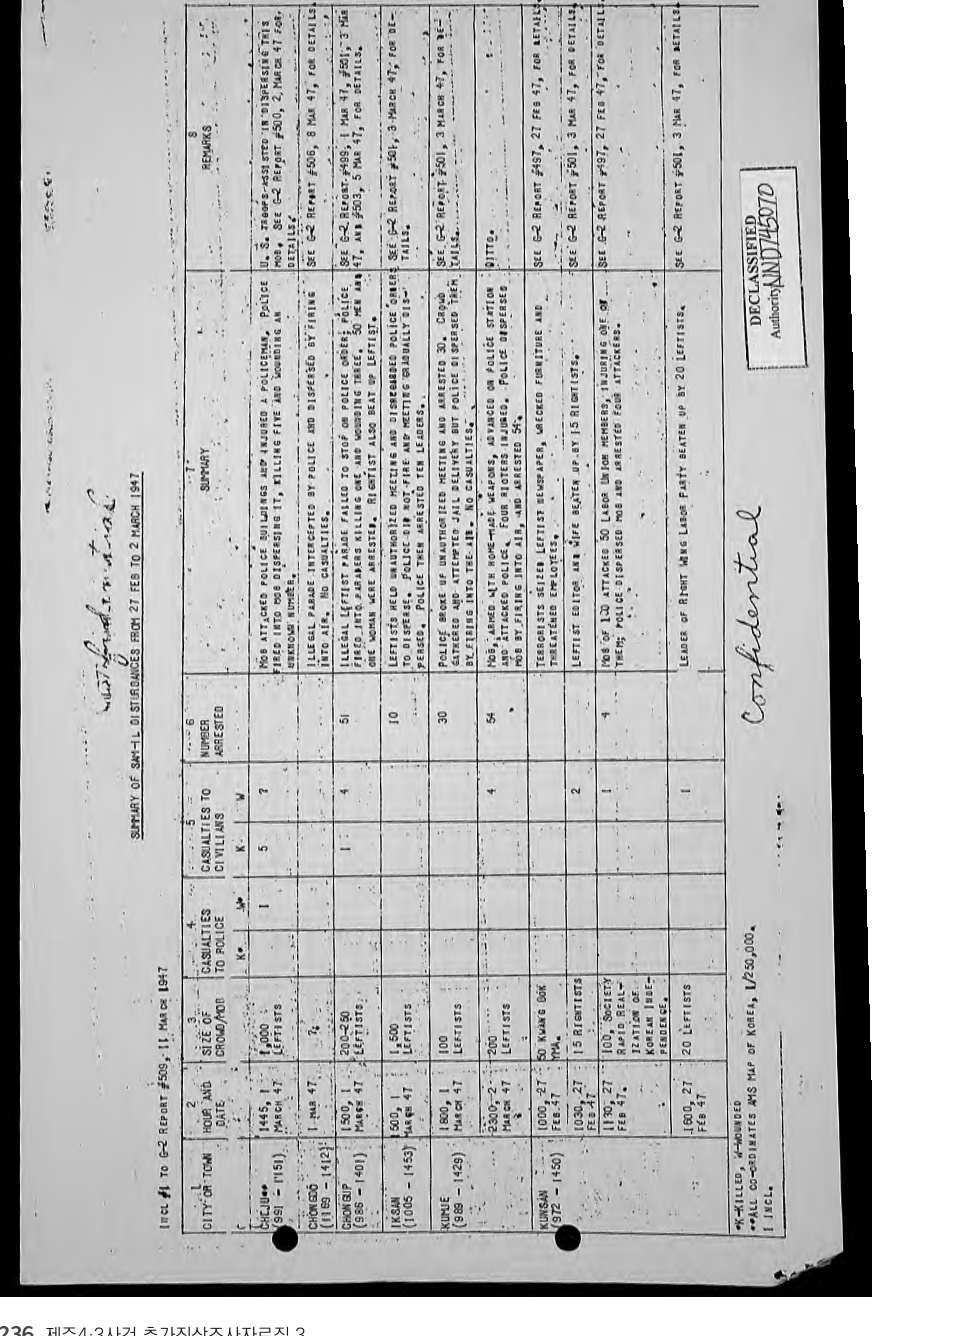 INCL #1 TO G-2 REPORT #509, 11 MARCH 1947
SUMMARY OF SAM-IL DISTURBANCES FROM 27 FEB TO 2 MARCH 1947
1 CITY OR TOWN
2 HOUR AND DATE
3 SIZE OF CROWD/MOB
4 CASUALTIES TO POLICE K* W*
5 CASUALTIES TO CIVILIANS K W
6 NUMBER ARRESTED
7 SUMMARY
8 REMARKS
CHEJU** (991 - 1151)
1445, 1 MARCH 47
1,000 LEFTISTS
1
5
7
MOB ATTACKED POLICE BUILDINGS AND INJURED A POLICEMAN. POLICE
FIRED INTO MOB DISPERSING IT, KILLING FIVE AND WOUNDING AN
UNKNOWN NUMBER.
U. S. TROOPS ASSISTED IN DISPERSING THIS
MOB. SEE G-2 REPORT #500, 2 MARCH 47 FOR
DETAILS.
CHONGDO (1169 - 1412)
1 MAR 47
?
ILLEGAL PARADE INTERCEPTED BY POLICE AND DISPERSED BY FIRING
INTO AIR. NO CASUALTIES.
SEE G-2 REPORT #506, 8 MAR 47, FOR DETAILS.
CHONGUP (986 - 1401)
1500, 1 MARCH 47
200-250 LEFTISTS
1
4
51
ILLEGAL LEFTIST PARADE FAILED TO STOP ON POLICE ORDER; POLICE
FIRED INTO PARADERS KILLING ONE AND WOUNDING THREE. 50 MEN AND
ONE WOMAN WERE ARRESTED. RIGHTIST ALSO BEAT UP LEFTIST.
SEE G-2 REPORT #499, 1 MAR 47, #501, 3 MAR
47, AND #503, 5 MAR 47, FOR DETAILS.
IKSAN (1005 - 1453)
1500, 1 MARCH 47
1,500 LEFTISTS
10
LEFTISTS HELD UNAUTHORIZED MEETING AND DISREGARDED POLICE ORDERS
TO DISPERSE. POLICE DID NOT FIRE AND MEETING GRADUALLY DIS-
PERSED. POLICE THEN ARRESTED TEN LEADERS.
SEE G-2 REPORT #501, 3 MARCH 47, FOR DE-
TAILS.
KUMJE (989 - 1429)
1800, 1 MARCH 47
100 LEFTISTS
30
POLICE BROKE UP UNAUTHORIZED MEETING AND ARRESTED 30. CROWD
GATHERED AND ATTEMPTED JAIL DELIVERY BUT POLICE DISPERSED THEM
BY FIRING INTO THE AIR. NO CASUALTIES.
SEE G-2 REPORT #501, 3 MARCH 47, FOR DE-
TAILS.
2300, 2 MARCH 47
200 LEFTISTS
4
54
MOB, ARMED WITH HOME-MADE WEAPONS, ADVANCED ON POLICE STATION
AND ATTACKED POLICE. FOUR RIOTERS INJURED. POLICE DISPERSED
MOB BY FIRING INTO AIR, AND ARRESTED 54.
DITTO.
KUNSAN (972 - 1450)
1000, 27 FEB 47
50 KWANG BOK YMA.
TERRORISTS SEIZED LEFTIST NEWSPAPER, WRECKED FURNITURE AND
THREATENED EMPLOYEES.
SEE G-2 REPORT #497, 27 FEB 47, FOR DETAILS.
1030, 27 FEB 47
15 RIGHTISTS
2
LEFTIST EDITOR AND WIFE BEATEN UP BY 15 RIGHTISTS.
SEE G-2 REPORT #501, 3 MAR 47, FOR DETAILS.
1130, 27 FEB 47.
100, SOCIETY RAPID REAL-
IZATION OF
KOREAN INDE-
PENDENCE.
1
4
MOB OF 100 ATTACKED 50 LABOR UNION MEMBERS, INJURING ONE OF
THEM; POLICE DISPERSED MOB AND ARRESTED FOUR ATTACKERS.
SEE G-2 REPORT #497, 27 FEB 47, FOR DETAILS.
1600, 27 FEB 47
20 LEFTISTS
1
LEADER OF RIGHT WING LABOR PARTY BEATEN UP BY 20 LEFTISTS.
SEE G-2 REPORT #501, 3 MAR 47, FOR DETAILS.
*K-KILLED, W-WOUNDED
**ALL CO-ORDINATES AMS MAP OF KOREA, 1/250,000.
1 INCL.
Confidential
DECLASSIFIED
Authority NND745070
236 제주4·3사건 추가진상조사자료집 3